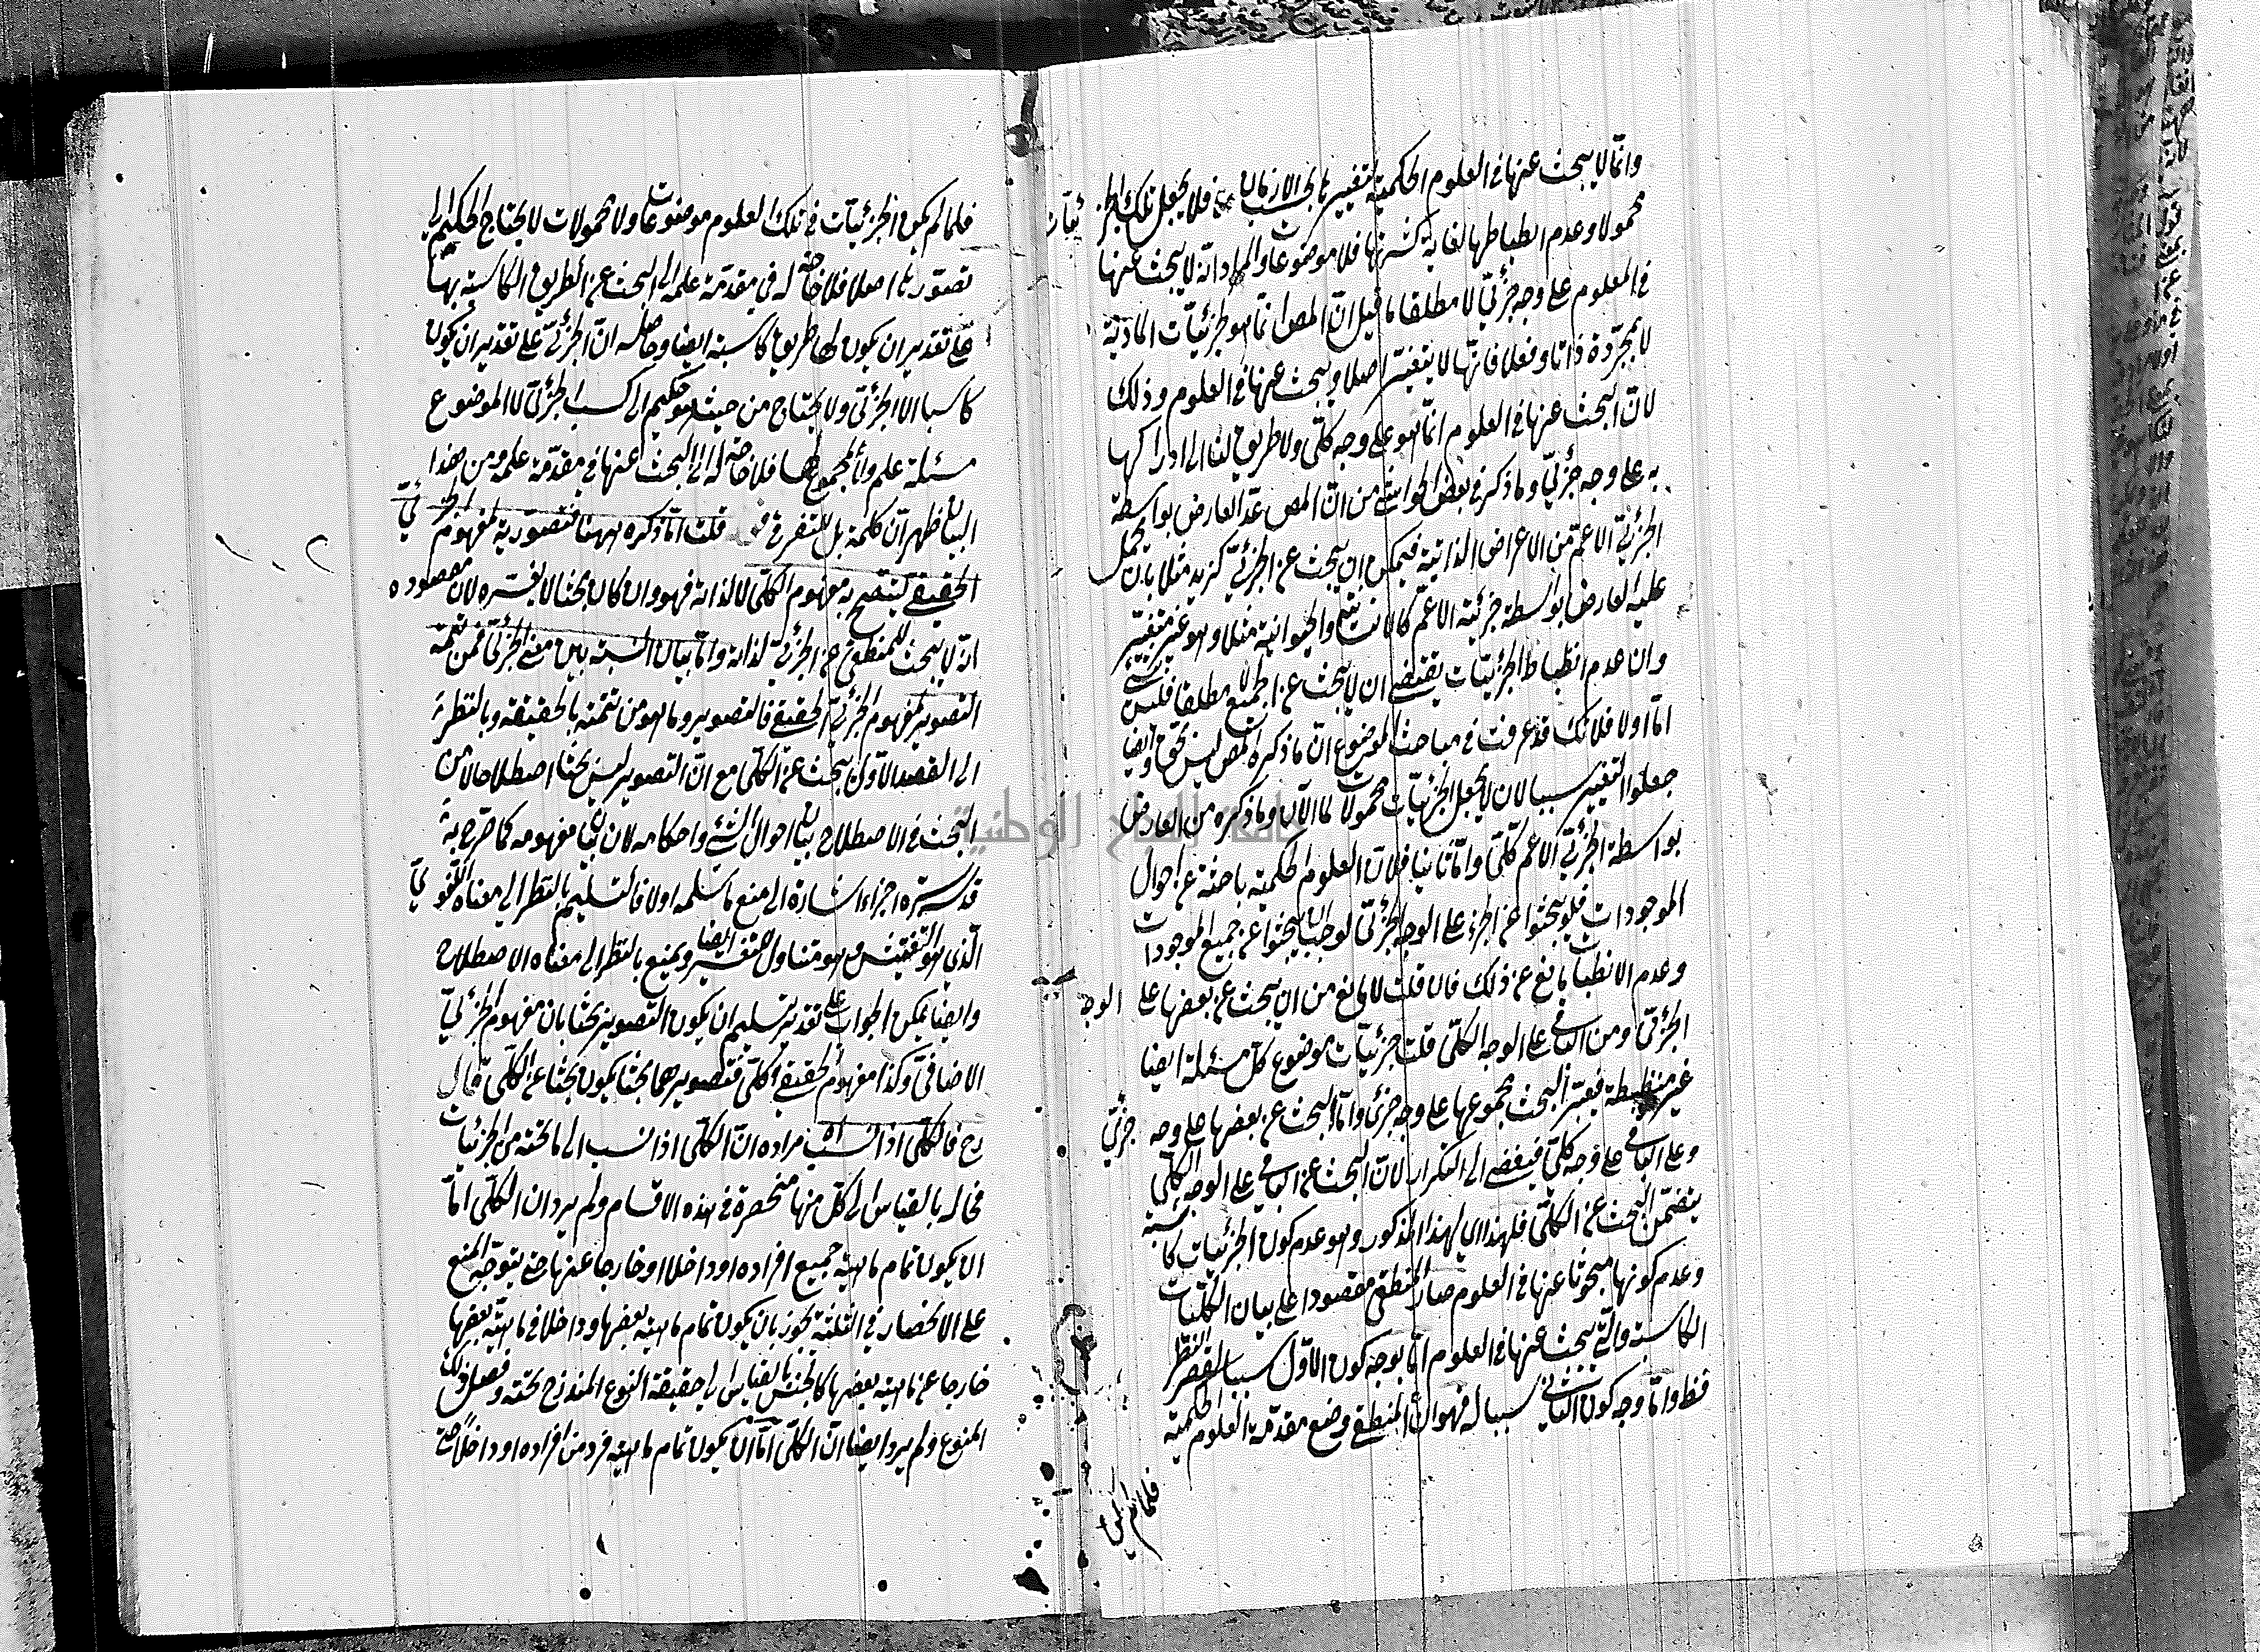 وانما لا يبحث عنها في العلوم الحكمية لتغيرها بحسب الازمان فلا يجعل تلك الجزئيات
محمولا وعدم انضباطها لغاية كثرتها فلا موضوعات والمراد انه لا يبحث عنها
في العلوم على وجه جزئي لا مطلقا ما قيل ان المص انما هو الجزئيات المادية
لا مجردة ذاتا وفعلا فانها لا يتغير اصلا ويبحث عنها في العلوم وذلك
لان البحث عنها في العلوم انما هو على وجه كلي ولا طريق لنا الى ادراكها
به على وجه جزئي وما ذكر في بعض الحواشي من ان المص عد العارض بواسطة
الجزئي الاعم من الاعراض الذاتية فيمكن ان يبحث عن الجزئي كزيد مثلا بان يحمل
عليه العارض بواسطة جزئية الاعم كالانسانية والحيوانية مثلا وهو غير متغير
وان عدم انضباط الجزئيات يقتضي ان لا يبحث عن الجميع لا مطلقا فليس بشيء
اما اولا فلانك قد عرفت في مباحث الموضوع ان ما ذكره المص ليس بحق وايضا
جعلوا التغير سببا لان لا يجعل الجزئيات محمولات وما ذكره من العارض
بواسطة الجزئي الاعم كلي واما ثانيا فلان العلوم الحكمية باحثة عن احوال
الموجودات فلو بحثوا عن الجزء على الوجه الجزئي لوجب ان يبحثوا عن جميع الموجودات
وعدم الانضباط مانع عن ذلك فان قلت لا مانع من ان يبحث عن بعضها على الوجه
الجزئي ومن الباقي على الوجه الكلي قلت جزئيات موضوع كل مسئلة ايضا
غير منضبطة فيتعسر البحث مجموعها على وجه جزئي واما البحث عن بعضها على وجه جزئي
وعلى الباقي على وجه كلي فيفضي الى التكرار لان البحث عن الباقي على الوجه الكلي
يتضمن البحث عن الكلي فلهذا اي لهذا المذكور وهو عدم كون الجزئيات كاسبة
وعدم كونها مبحوثا عنها في العلوم صار المنطقي مقصودا على بيان الكليات
الكاسبة والتي يبحث عنها في العلوم اما بوجه كون الاول سببا لقصر النظر
فقط واما وجه كون الثاني سببا له فهو ان المنطقي وضع مقدمة العلوم الحكمية
فلما لم يكن
فلما لم يكن الجزئيات في تلك العلوم موضوعات ولا محمولات لا يحتاج الحكيم الى
تصورها اصلا فلا حاجة له في مقدمة علمه الى البحث عن الطريق الكاسبة بها
على تقدير ان يكون لها طريق كاسبة ايضا وحاصله ان الجزئي على تقدير ان يكون
كاسبا الا الجزئي ولا يحتاج من حيث هو حكيم الى كسب الجزئي لا الموضوع
مسئلة علم ولا لمحمولها فلا حاجة له الى البحث عنها في مقدمة علمه ومن هذا
البيان ظهر ان كلمة بل للتفرقي قلت اما ذكره ههنا فتصورية لمفهوم الجزئي
الحقيقي ليتضح به مفهوم الكلي لا لذاته فهو وان كان بحثا لا يضره لان مقصوده
انه لا يبحث المنطقي عن الجزئي لذاته واما بيان النسبة بين معنى الجزئي فمن تتمة
التصوير لمفهوم الجزئي الحقيقي فالتصوير وما هو من تتمته بالحقيقة وبالنظر
الى القصد الاول يبحث عن الكلي مع ان التصوير ليس بحثا اصطلاحا لان
البحث في الاصطلاح بيان احوال الشيء واحكامه لا بيان مفهومه كما صرح به
قدس سره اجزاء اشارة الى منع ما سلمه اولا فالتسليم بالنظر الى معناه اللغوي
الذي هو التفتيش وهو متناول ايضا ويمنع بالنظر الى معناه الاصطلاح
وايضا يمكن الجواب على تقدير تسليم ان يكون التصوير بحثا بان مفهوم الجزئي
الاضافي وكذا مفهوم الحقيقي كلي فتصويرهما بحثا يكون بحثا عن الكلي قال
رح فالكلي اذا نسب اه مراده ان الكلي اذا نسب الى ما تحته من الجزئيات
فحاله بالقياس الى كل منها منحصرة في هذه الاقسام ولم يرد ان الكلي اما
ان يكون تمام ماهية جميع افراده او داخلا او خارجا عنها حتى يتوجه المنع
على الانحصار في الثلثة بجواز بان يكون تمام ماهية بعضها وداخلا في ماهية بعضها
خارجا عن ماهية بعضها كالجنس بالقياس الى حقيقة النوع المندرج تحته وفصل ذلك
النوع ولم يرد ايضا ان الكلي اما ان يكون تمام ماهية فرد من افراده او داخلا